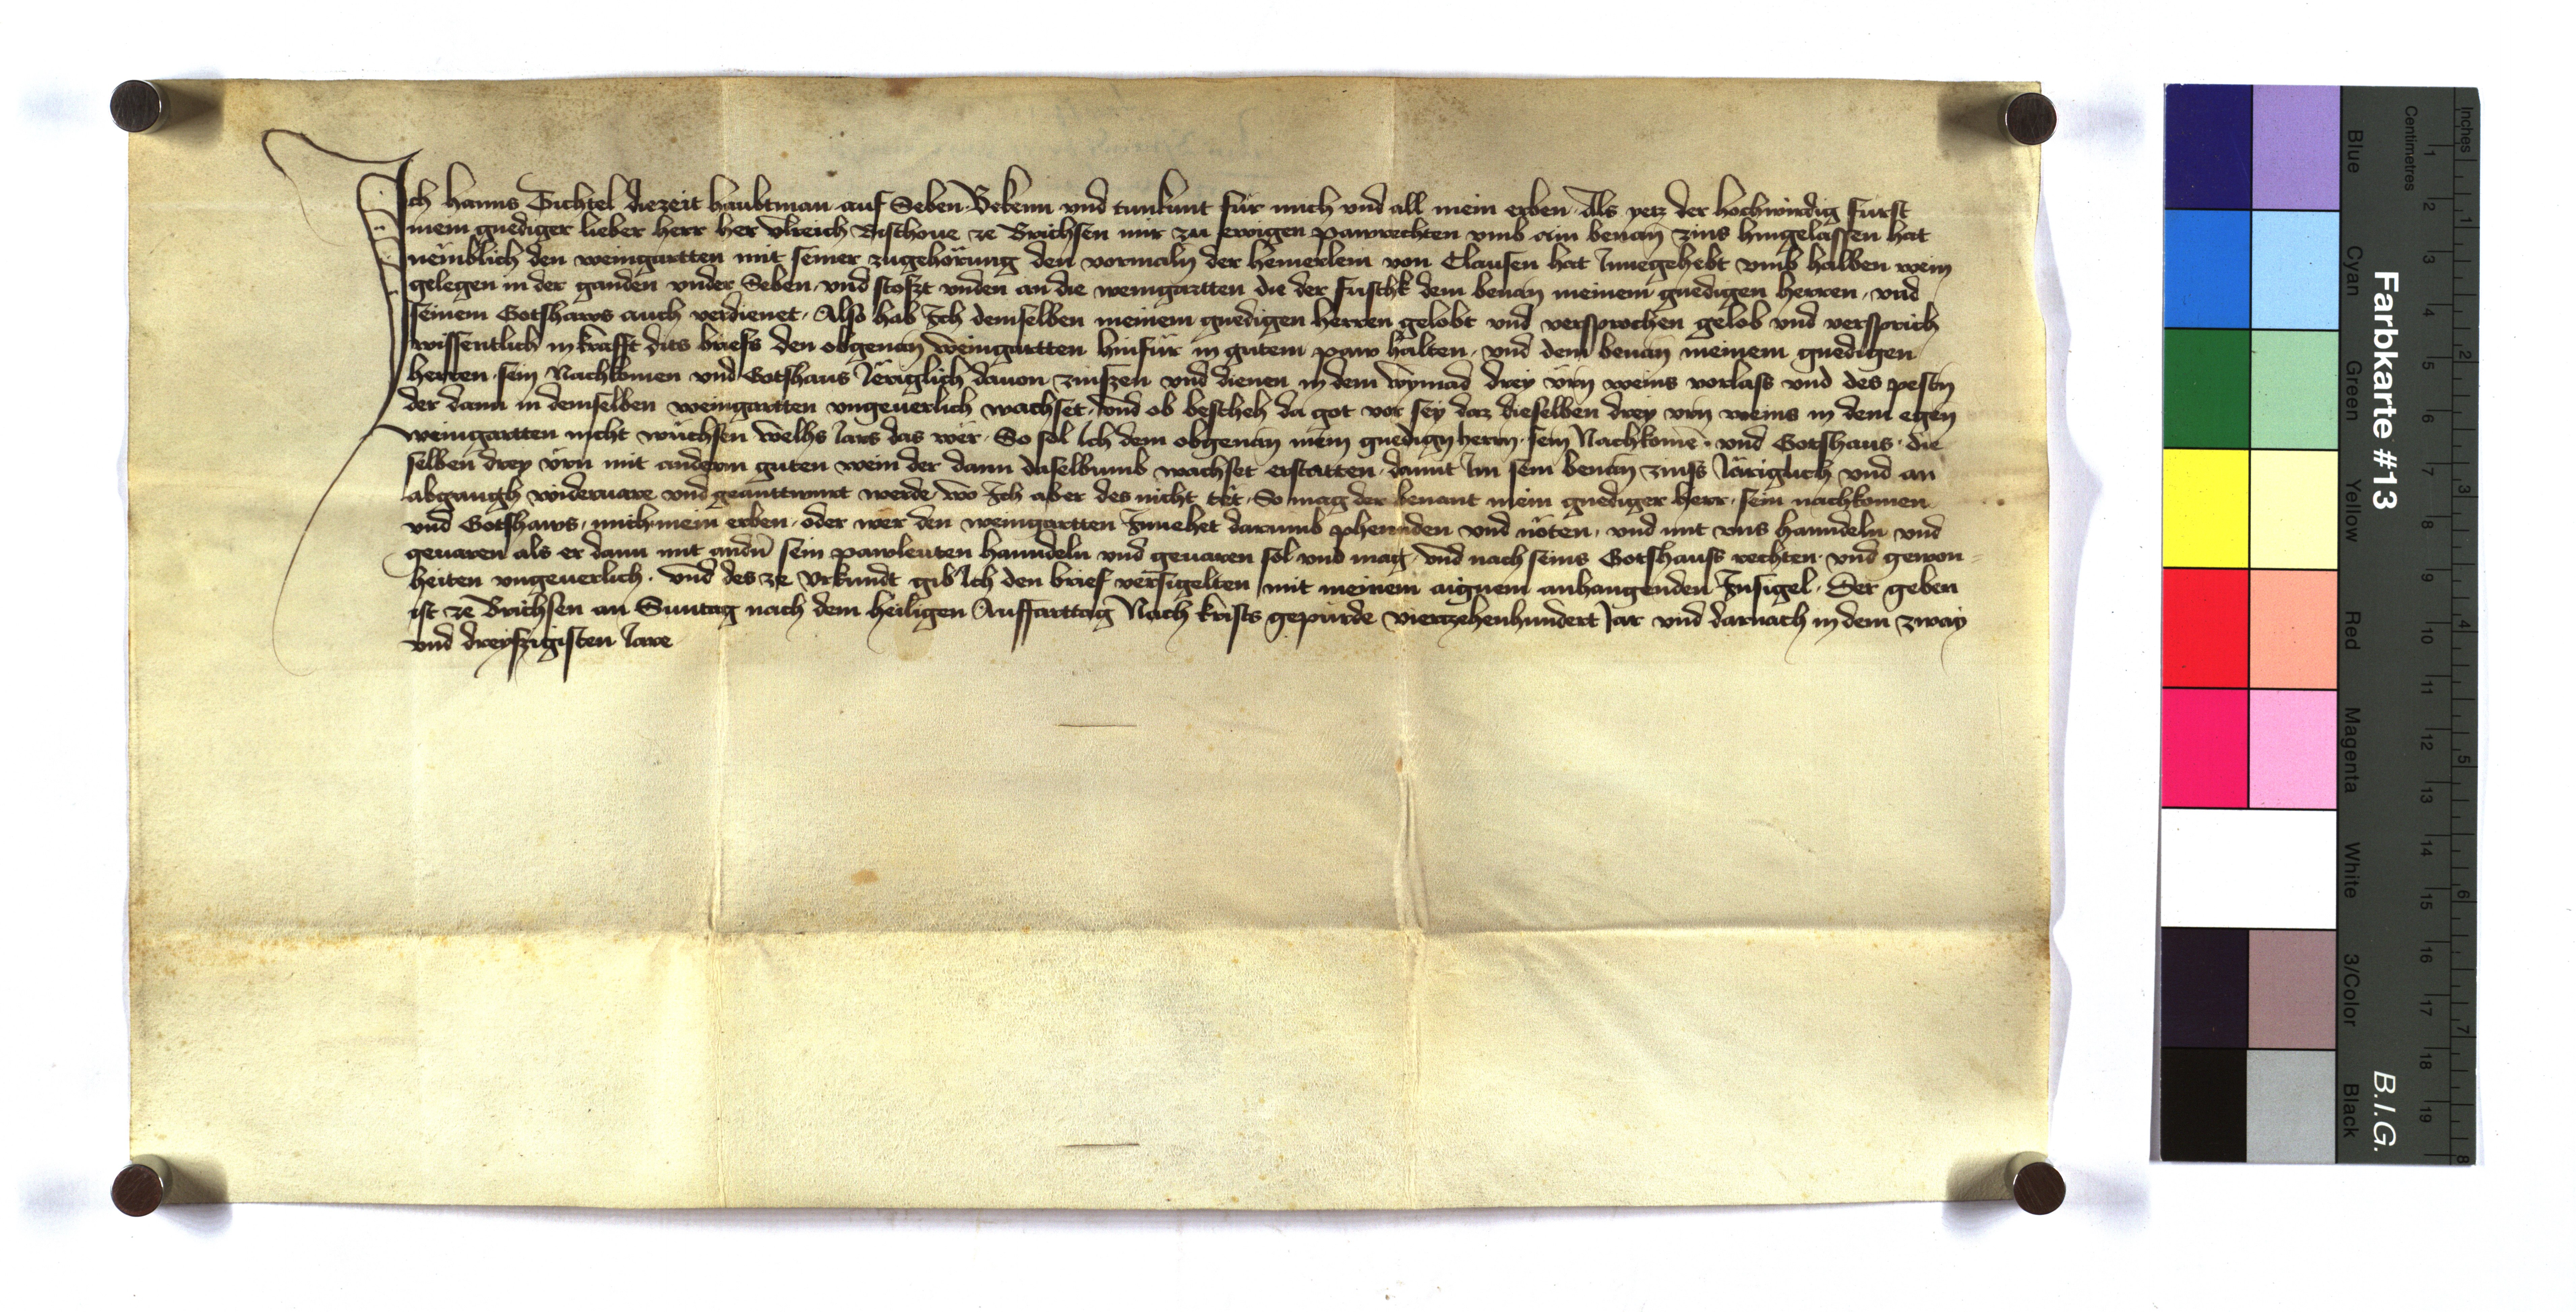 Ich Hanns Sichtel diezeit haubtman auf Seben Bekenn vnd tunkunt für mich vnd all mein erben Als yetz der hochwirdig fürst
mein gnediger lieber herr her Vlreich Bischoue ze Brichsen mir zu ewigen pawrechten vmb ain benan̄ zins hingelassen hat
nëmblich den weingartten mit seiner zugehörung den vormaln der Hemerlein von Clausen hat Innegehebt vmb halben wein
gelegen in der ganden vnder Seben vnd stoszt vnden an die weingartten die der fuschk dem benan̄ meinem gnedigen herren vnd
seinem Gotshaws auch verdienet Also hab Ich demselben meinem gnedigen herren gelobt vnd versprochen gelob vnd versprich
wissentlich in krafft dits briefs den obgenan̄ weingartten hinfür in gutem paw halten vnd dem benan̄ meinem gnedigen
herren sein Nachkomen vnd Gotshaus Jëriglich dauon zinszen vnd dienen in dem wymad drey ürn weins vorlass vnd des pestn̄
der dann in demselben weingartten vngeuerlich wachset vnd ob bescheh da got vor sey daz dieselben drey vrn weins in dem egen̄
weingartten nicht wüchsen welhs Jars das wër So sol Ich dem obgenan̄ mein gnedign̄ herrn sein Nachkomē vnd Gotshaus die
selben drey ürn mit anderm guten wein der dann daselbumb wachset erstatten damit Im sein benan̄ zinss Järiglich vnd an
abgangh wideruare vnd geanttwurt werde wo Ich aber des nicht tët So mag der benant mein gnediger herr sein nachkomen
vnd Gotshaws mich mein erben oder wer den weingartten Innehet darumb phennden vnd nöten vnd mit vns hanndeln vnd
geuaren als er dann mit andn̄ sein pawleuten hanndeln vnd geuaren sol vnd mag vnd nach seins Gotshauss rechten vnd gewon
heiten vngeuerlich vnd des ze vrkundt gib Ich den brief versigelten mit meinem aignem anhangenden Insigel Der geben
ist ze Brichsen an Suntag nach dem heiligen Auffarttag Nach krists gepurde viertzehenhundert Jar vnd darnach in dem zway
vnd dreyszigisten Jare
Farbkarte #13
B.I.G.
Inches
Centimetres
Blue Cyan Green Yellow Red Magenta White 3/Color Black
1 2 3 4 5 6 7 8 9 10 11 12 13 14 15 16 17 18 19
1 2 3 4 5 6 7 8